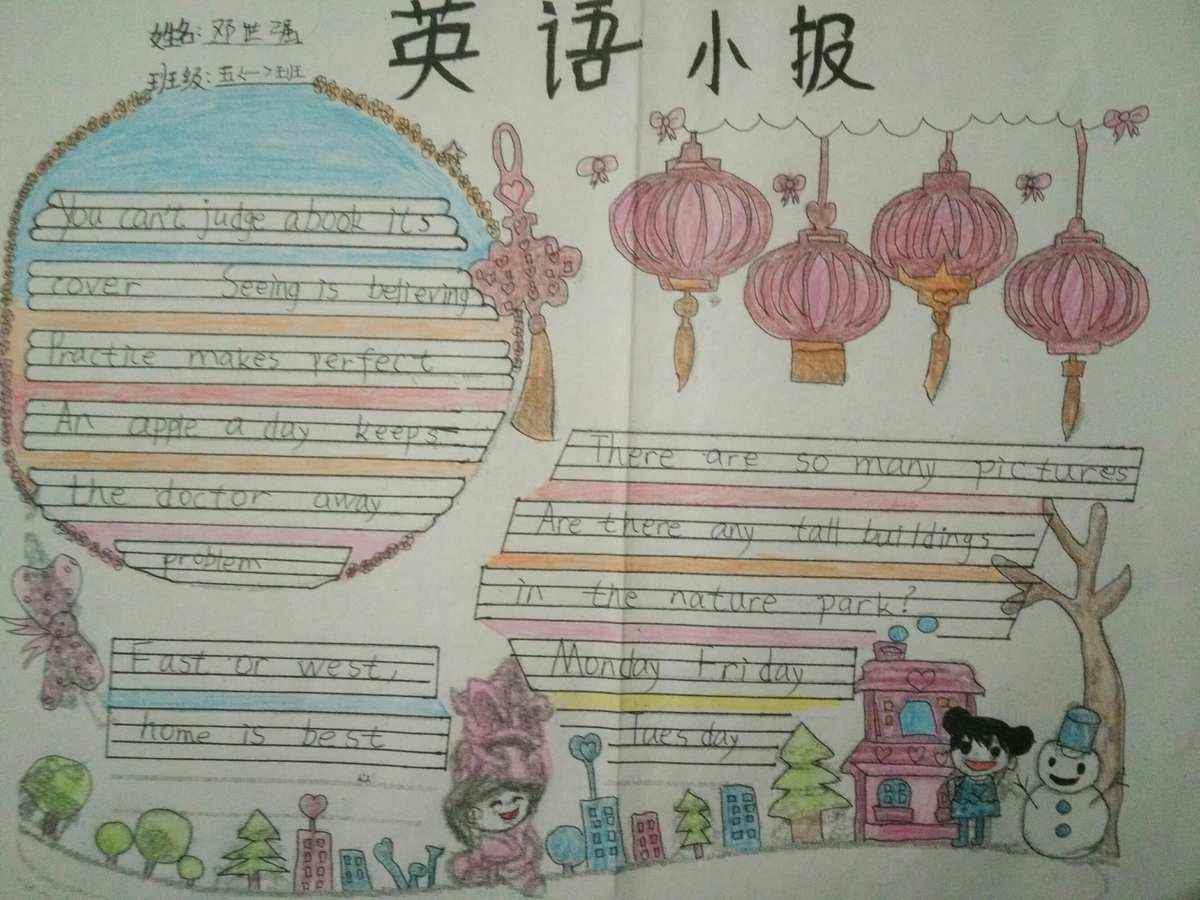 英语小报
姓名:邓世强
班级:五<一>班
You can't judge a book it's
cover Seeing is believing
Practice makes perfect
An apple a day keeps
the doctor away
problem
East or west,
home is best
There are so many pictures
Are there any tall buildings
in the nature park?
Monday Friday
Tuesday